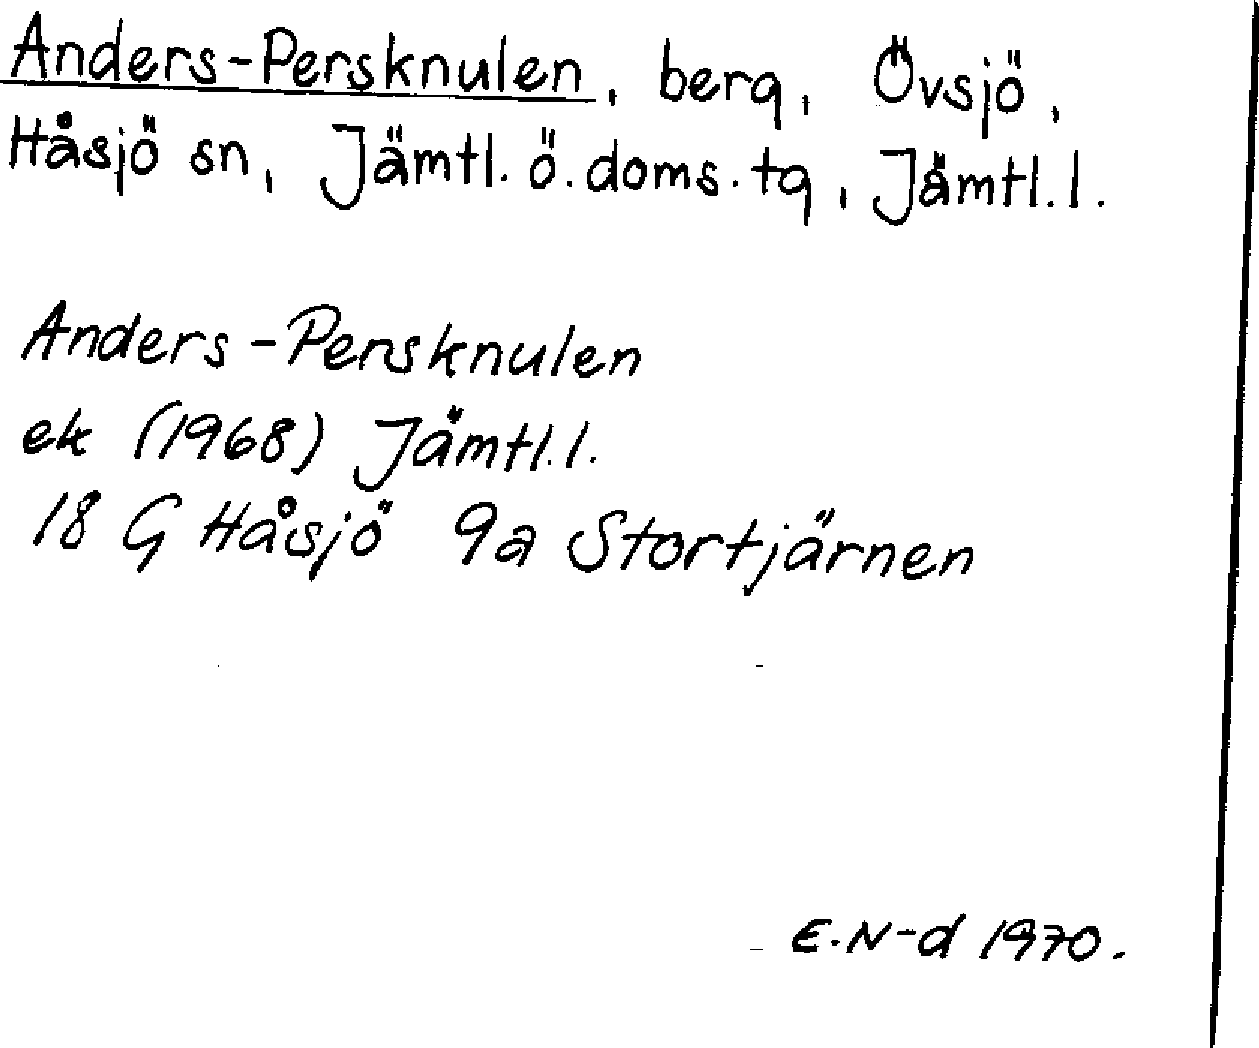 Anders-Persknulen, berg, Övsjö,
Håsjö sn, Jämtl. ö. doms. tg, Jämtl. l.
Anders-Persknulen
ek (1968) Jämtl. l.
18 G Håsjö 9a Stortjärnen
E. N-d 1970.